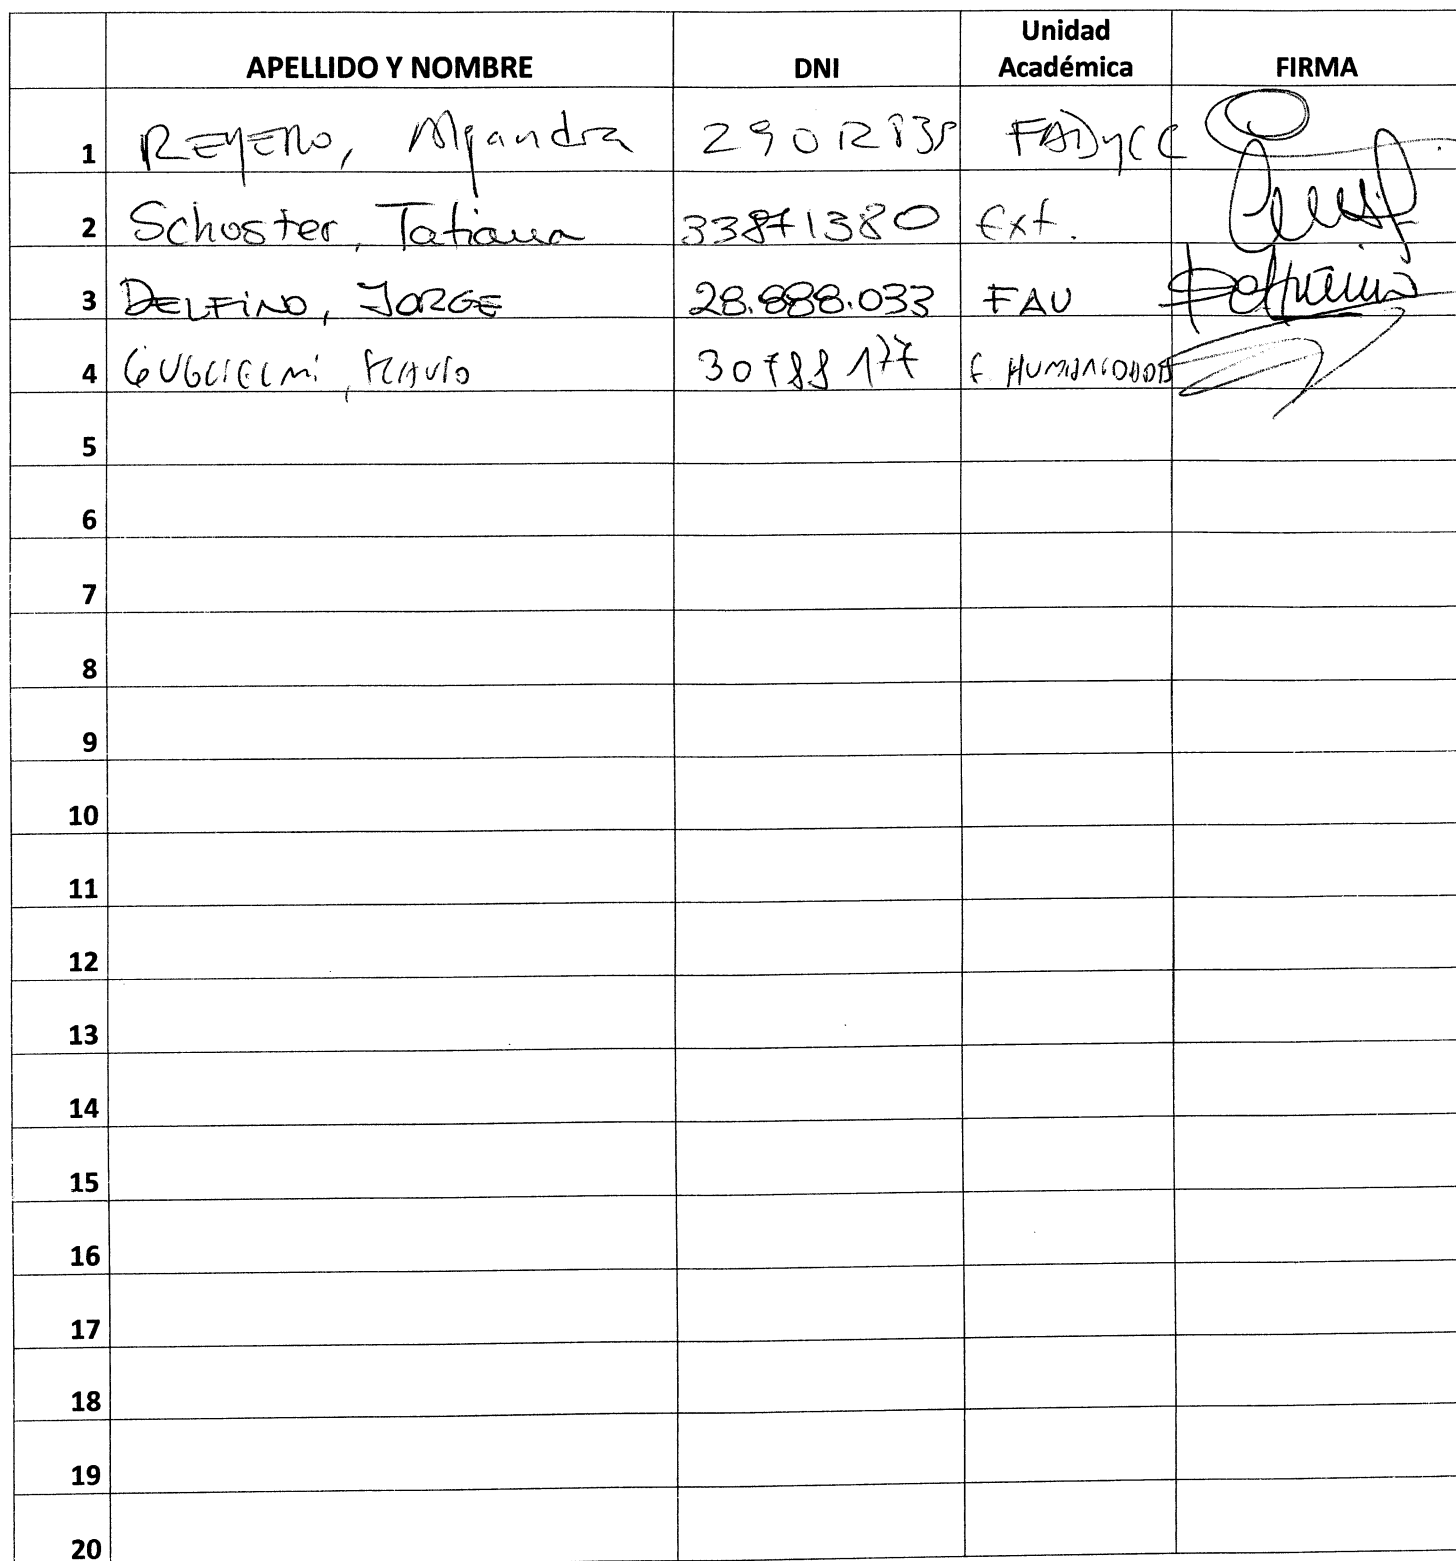 Unidad
APELLIDO Y NOMBRE DNI Académica FIRMA
1 REYERO, Alejandra FADyCC
2 Schoster, Tatiana 33871380 Ext.
3 DELFINO, JORGE 28.888.033 FAU
4 GUGLIELMI, FLAVIO 30788177 F. HUMANIDADES
5
6
7
8
9
10
11
12
13
14
15
16
17
18
19
20